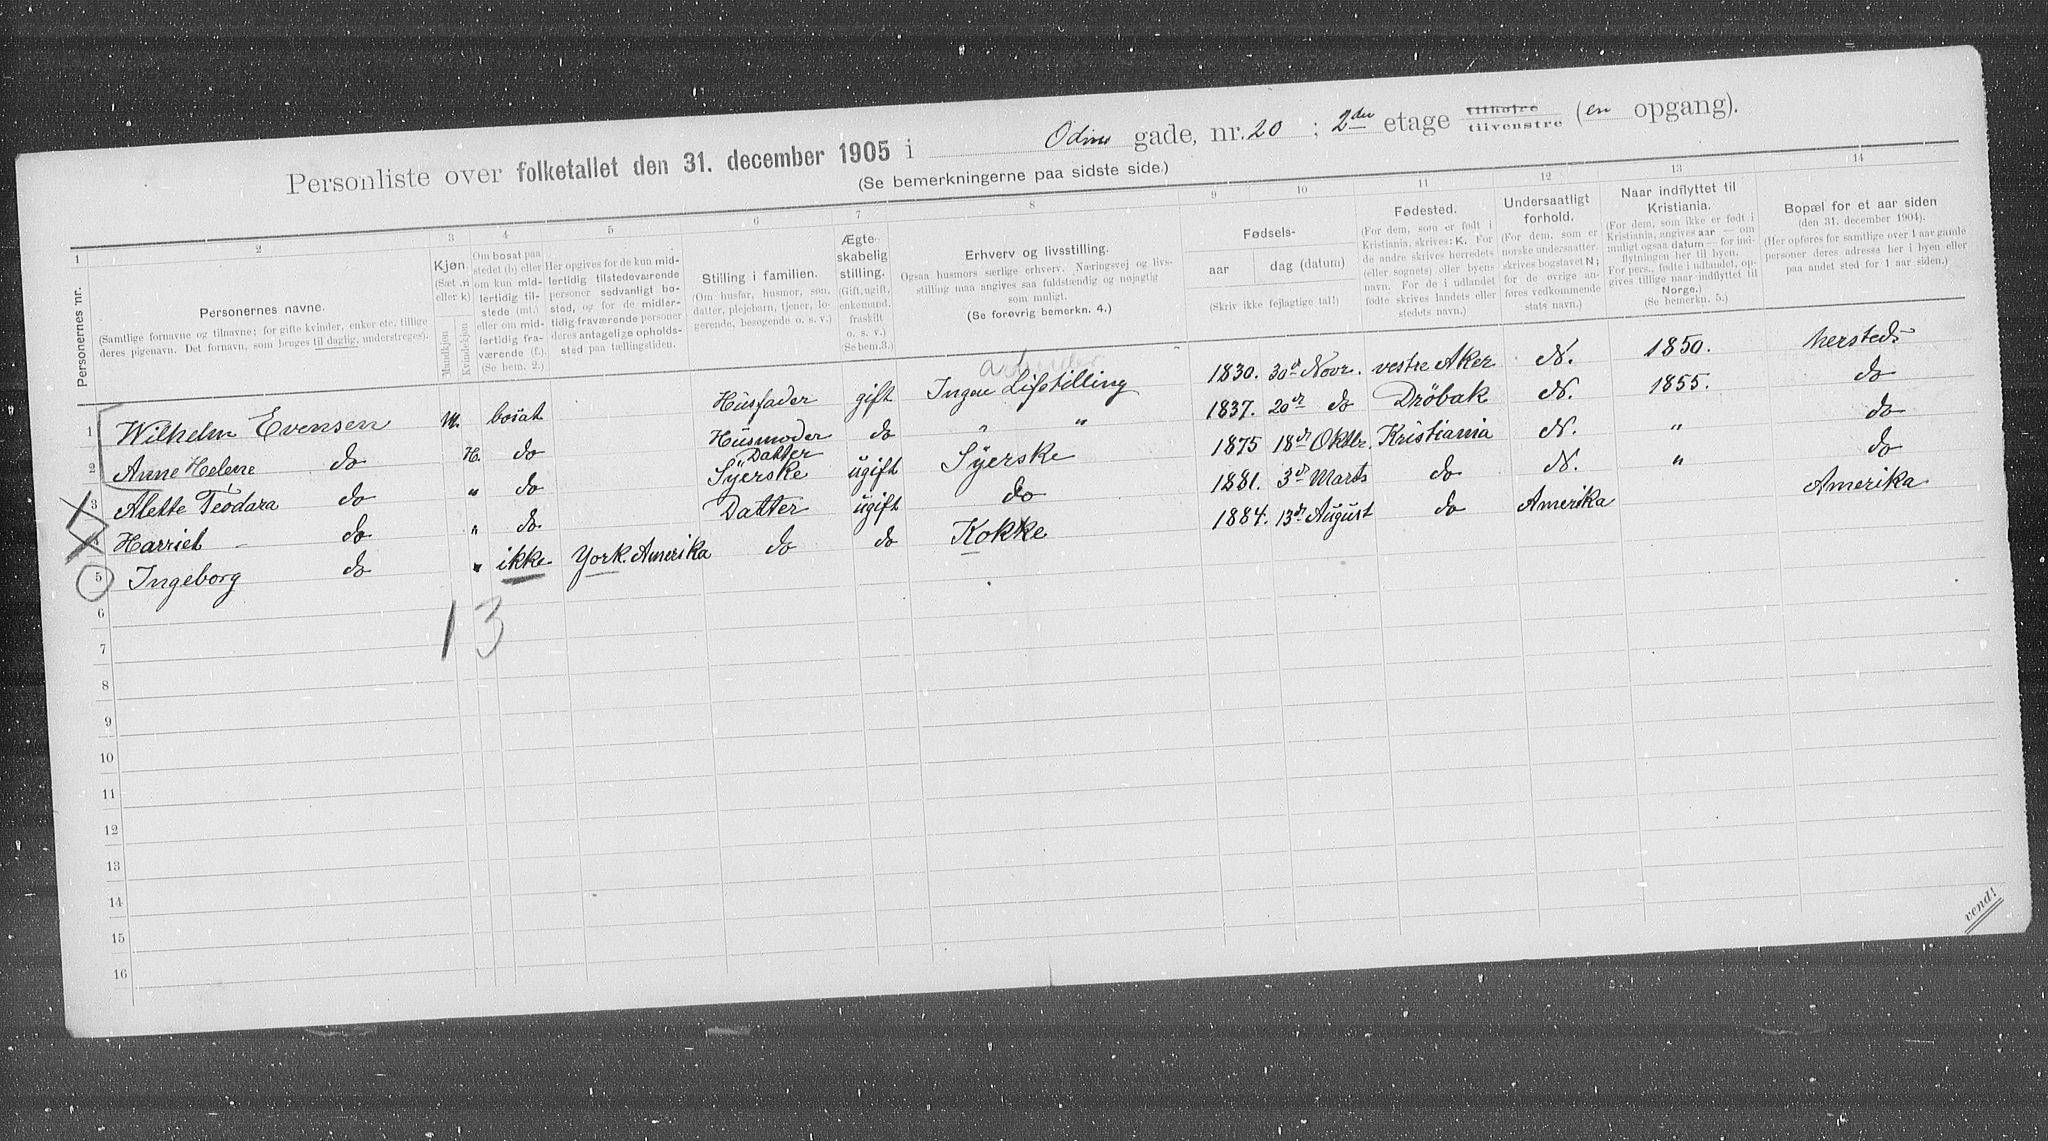 Personliste over folketallet den 31. december 1905 i Odins gade, nr. 20 ; 2den etage tilhøire tilvenstre (en opgang).
(Se bemerkningerne paa sidste side.)
1 2 3 4 5 6 7 8 9 10 11 12 13 14
Personernes nr.
Personernes navne.
(Samtlige fornavne og tilnavne; for gifte kvinder, enker etc. tillige deres pigenavn. Det fornavn, som bruges til daglig, understreges).
Kjøn.
(Sæt m eller k)
Mandkjøn
Kvindekjøn
Om bosat paa stedet (b) eller om kun midlertidig tilstede (mt.) eller om midlertidig fraværende (f.).
(Se bem. 2.)
Her opgives for de kun midlertidig tilstedeværende personer sedvanligt bosted, og for de midlertidig fraværende personer deres antagelige opholdssted paa tællingstiden.
Stilling i familien.
(Om husfar, husmor, søn, datter, plejebarn, tjener, logerende, besøgende o. s. v.)
Ægteskabelig stilling.
(Gift, ugift, enkemand, fraskilt o. s. v.)
(Se bem. 3.)
Erhverv og livsstilling.
Ogsaa husmors særlige erhverv. Næringsvej og livsstilling maa angives saa fuldstændig og nøjagtig som muligt.
(Se forøvrig bemerkn. 4.)
Fødsels-
aar
dag (datum)
(Skriv ikke fejlagtige tal!)
Fødested.
(For dem, som er født i Kristiania, skrives: K. For de andre skrives herredets (eller sognets) eller byens navn. For de i udlandet fødte skrives landets eller stedets navn.)
Undersaatligt forhold.
(For dem, som er norske undersaatter, skrives bogstavet N; for de øvrige anføres vedkommende stats navn.)
Naar indflyttet til Kristiania.
(For dem, som ikke er født i Kristiania, angives aar — om muligt ogsaa datum — for indflytningen her til byen. For pers., fødte i udlandet, opgives tillige naar indflyttet til Norge.)
(Se bemerkn. 5.)
Bopæl for et aar siden
(den 31. december 1904).
(Her opføres for samtlige over 1 aar gamle personer deres adresse her i byen eller paa andet sted for 1 aar siden.)
1 Wilhelm Evensen M. bosat Husfader gift Ingen Lifstilling 1830. 30d Novr. vestre Aker N. 1850.
2 Anne Helene do K. do Husmoder do " " 1837. 20de do Dröbak N. 1855. do
3 Alette Teodara do " do Datter Syerske ugift Syerske 1875 18d Oktbr. Kristiania N. " do
4 Harriet - do " do Datter ugift do 1881. 3d Marts do N. " do
5 Ingeborg do " ikke York. Amerika do do Kokke 1884. 13d August do Amerika Amerika
6
13
7
8
9
10
11
12
13
14
15
16
vend!